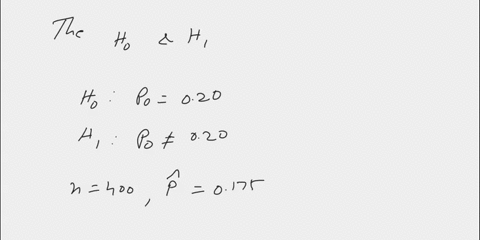 The H₀ & H₁
H₀ : P₀ = 0.20
H₁ : P₀ ≠ 0.20
n = 400, P̂ = 0.175